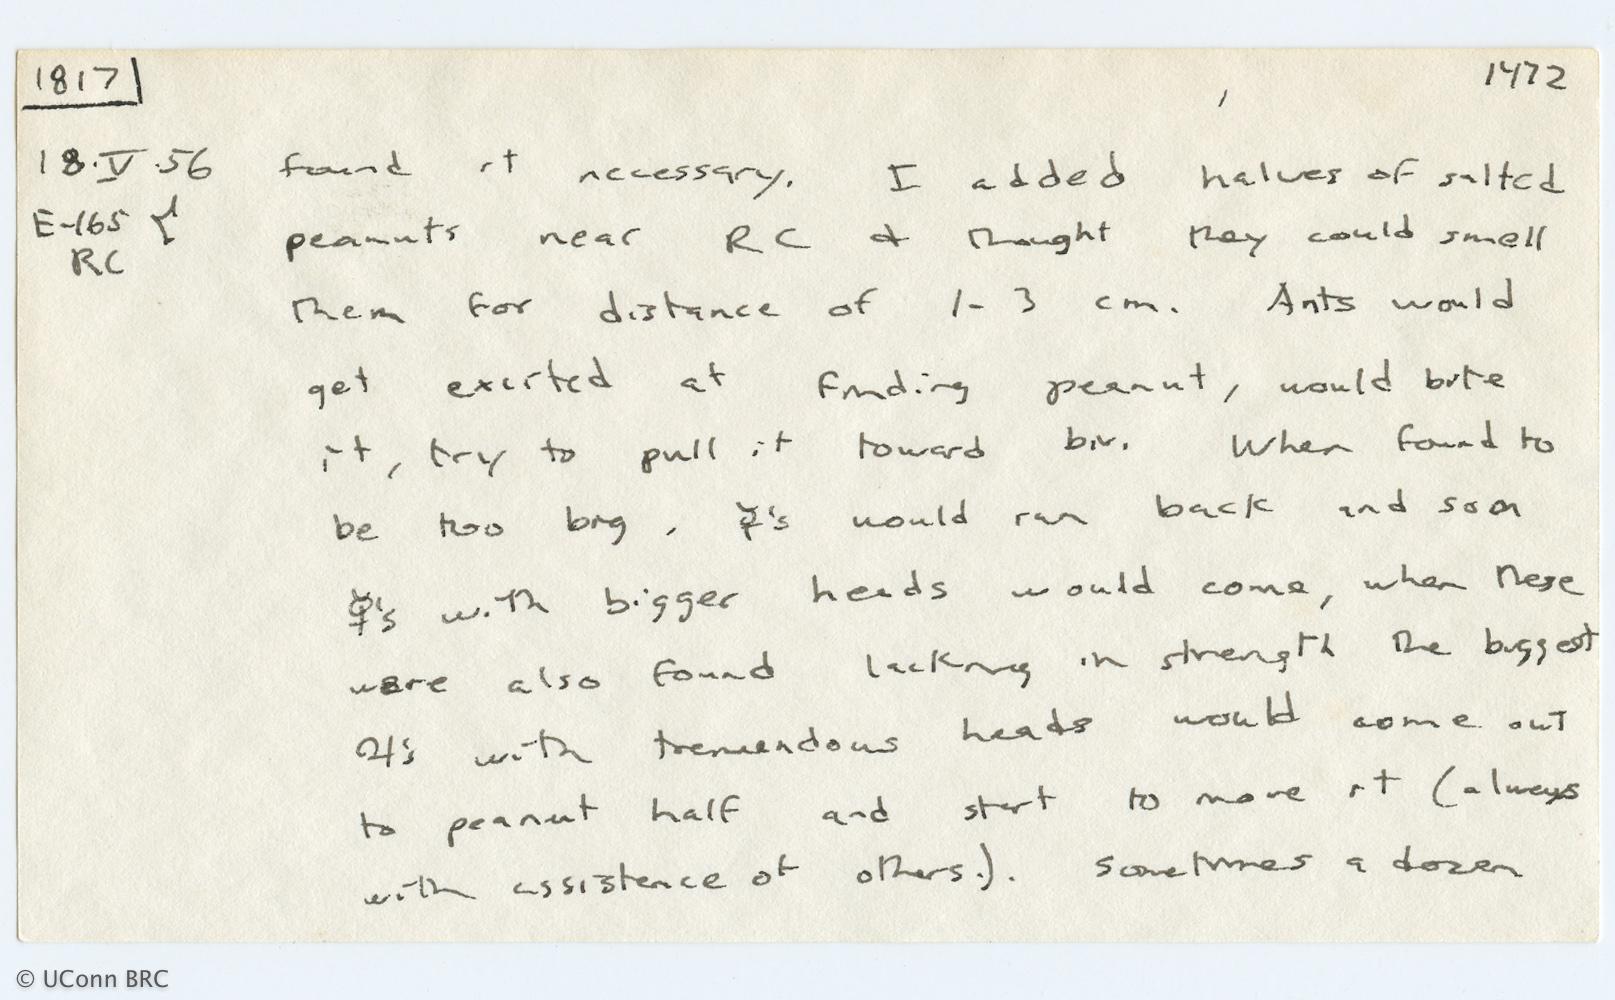 1817
1472
18.V.56 found it necessary. I added halves of salted
E-165 { peanuts near RC & thought they could smell
RC
them for distance of 1-3 cm. Ants would
get excited at finding peanut, would bite
it, try to pull it toward biv. When found to
be too big, ☿'s would run back and soon
☿'s with bigger heads would come, when these
were also found lacking in strength the biggest
♃'s with tremendous heads would come out
to peanut half and start to move it (always
with assistence of others.). Sometimes a dozen
© UConn BRC